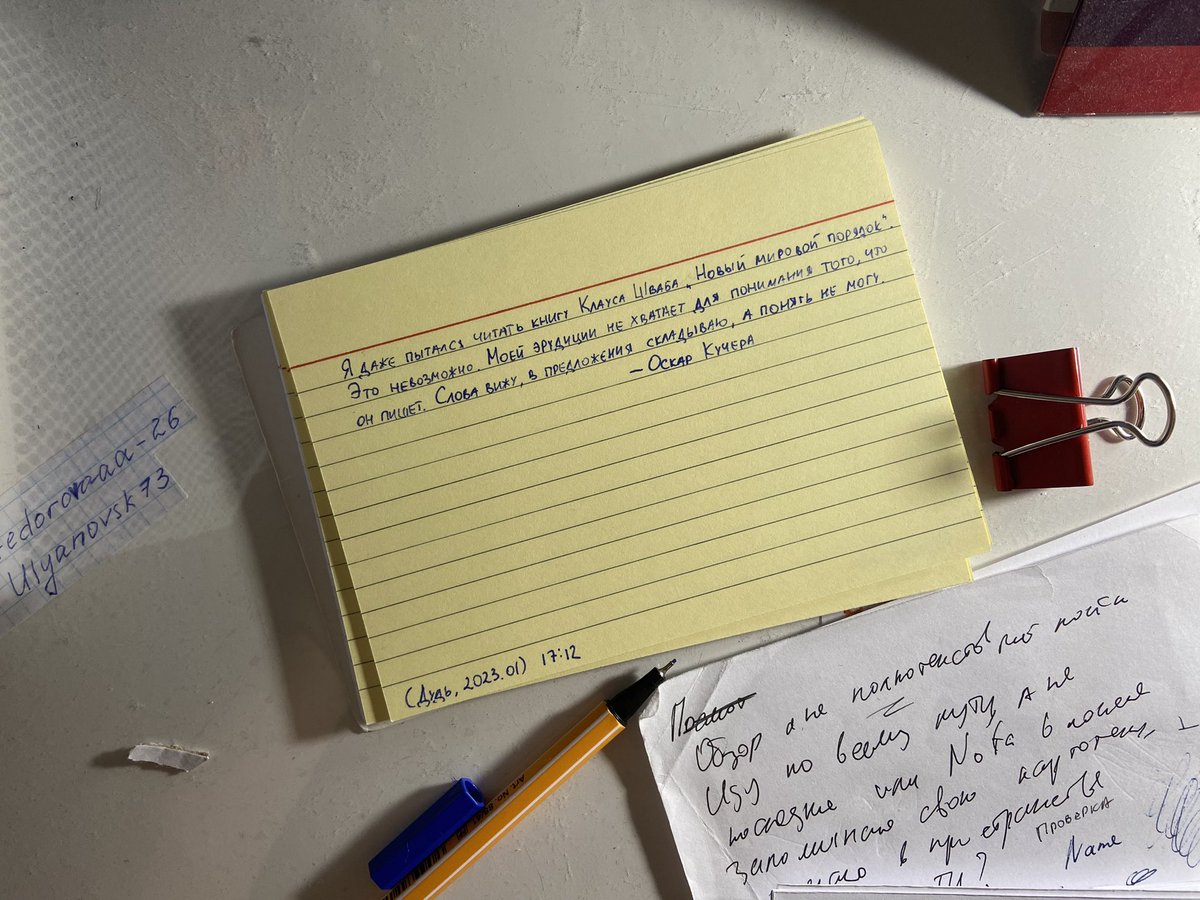 Я даже пытался читать книгу Клауса Шваба „Новый мировой порядок“.
Это невозможно. Моей эрудиции не хватает для понимания того, что
он пишет. Слова вижу, в предложения складываю, а понять не могу.
– Оскар Кучера
(Дудь, 2023.01) 17:12
edorovaaa-26
Ulyanovsk73
Обзор а не
Иду по всему пути, а не
или Nota в
Запоминаю свою картотеку,
в пространстве
Проверка
Name